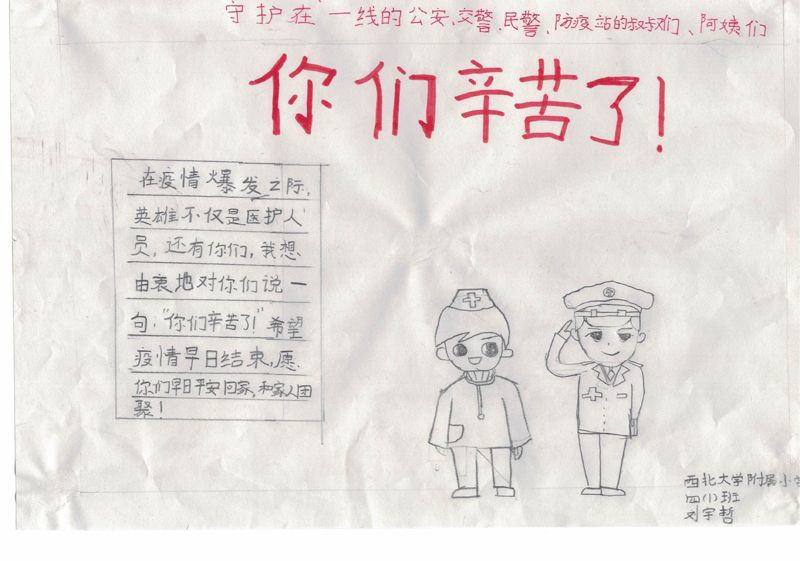 守护在一线的公安、交警、民警、防疫站的叔叔们、阿姨们
你们辛苦了!
在疫情爆发之际,
英雄不仅是医护人
员,还有你们,我想
由衷地对你们说一
句:“你们辛苦了!”希望
疫情早日结束,愿
你们早日平安回家,和家人团
聚!
西北大学附属小学
四(1)班
刘宇哲